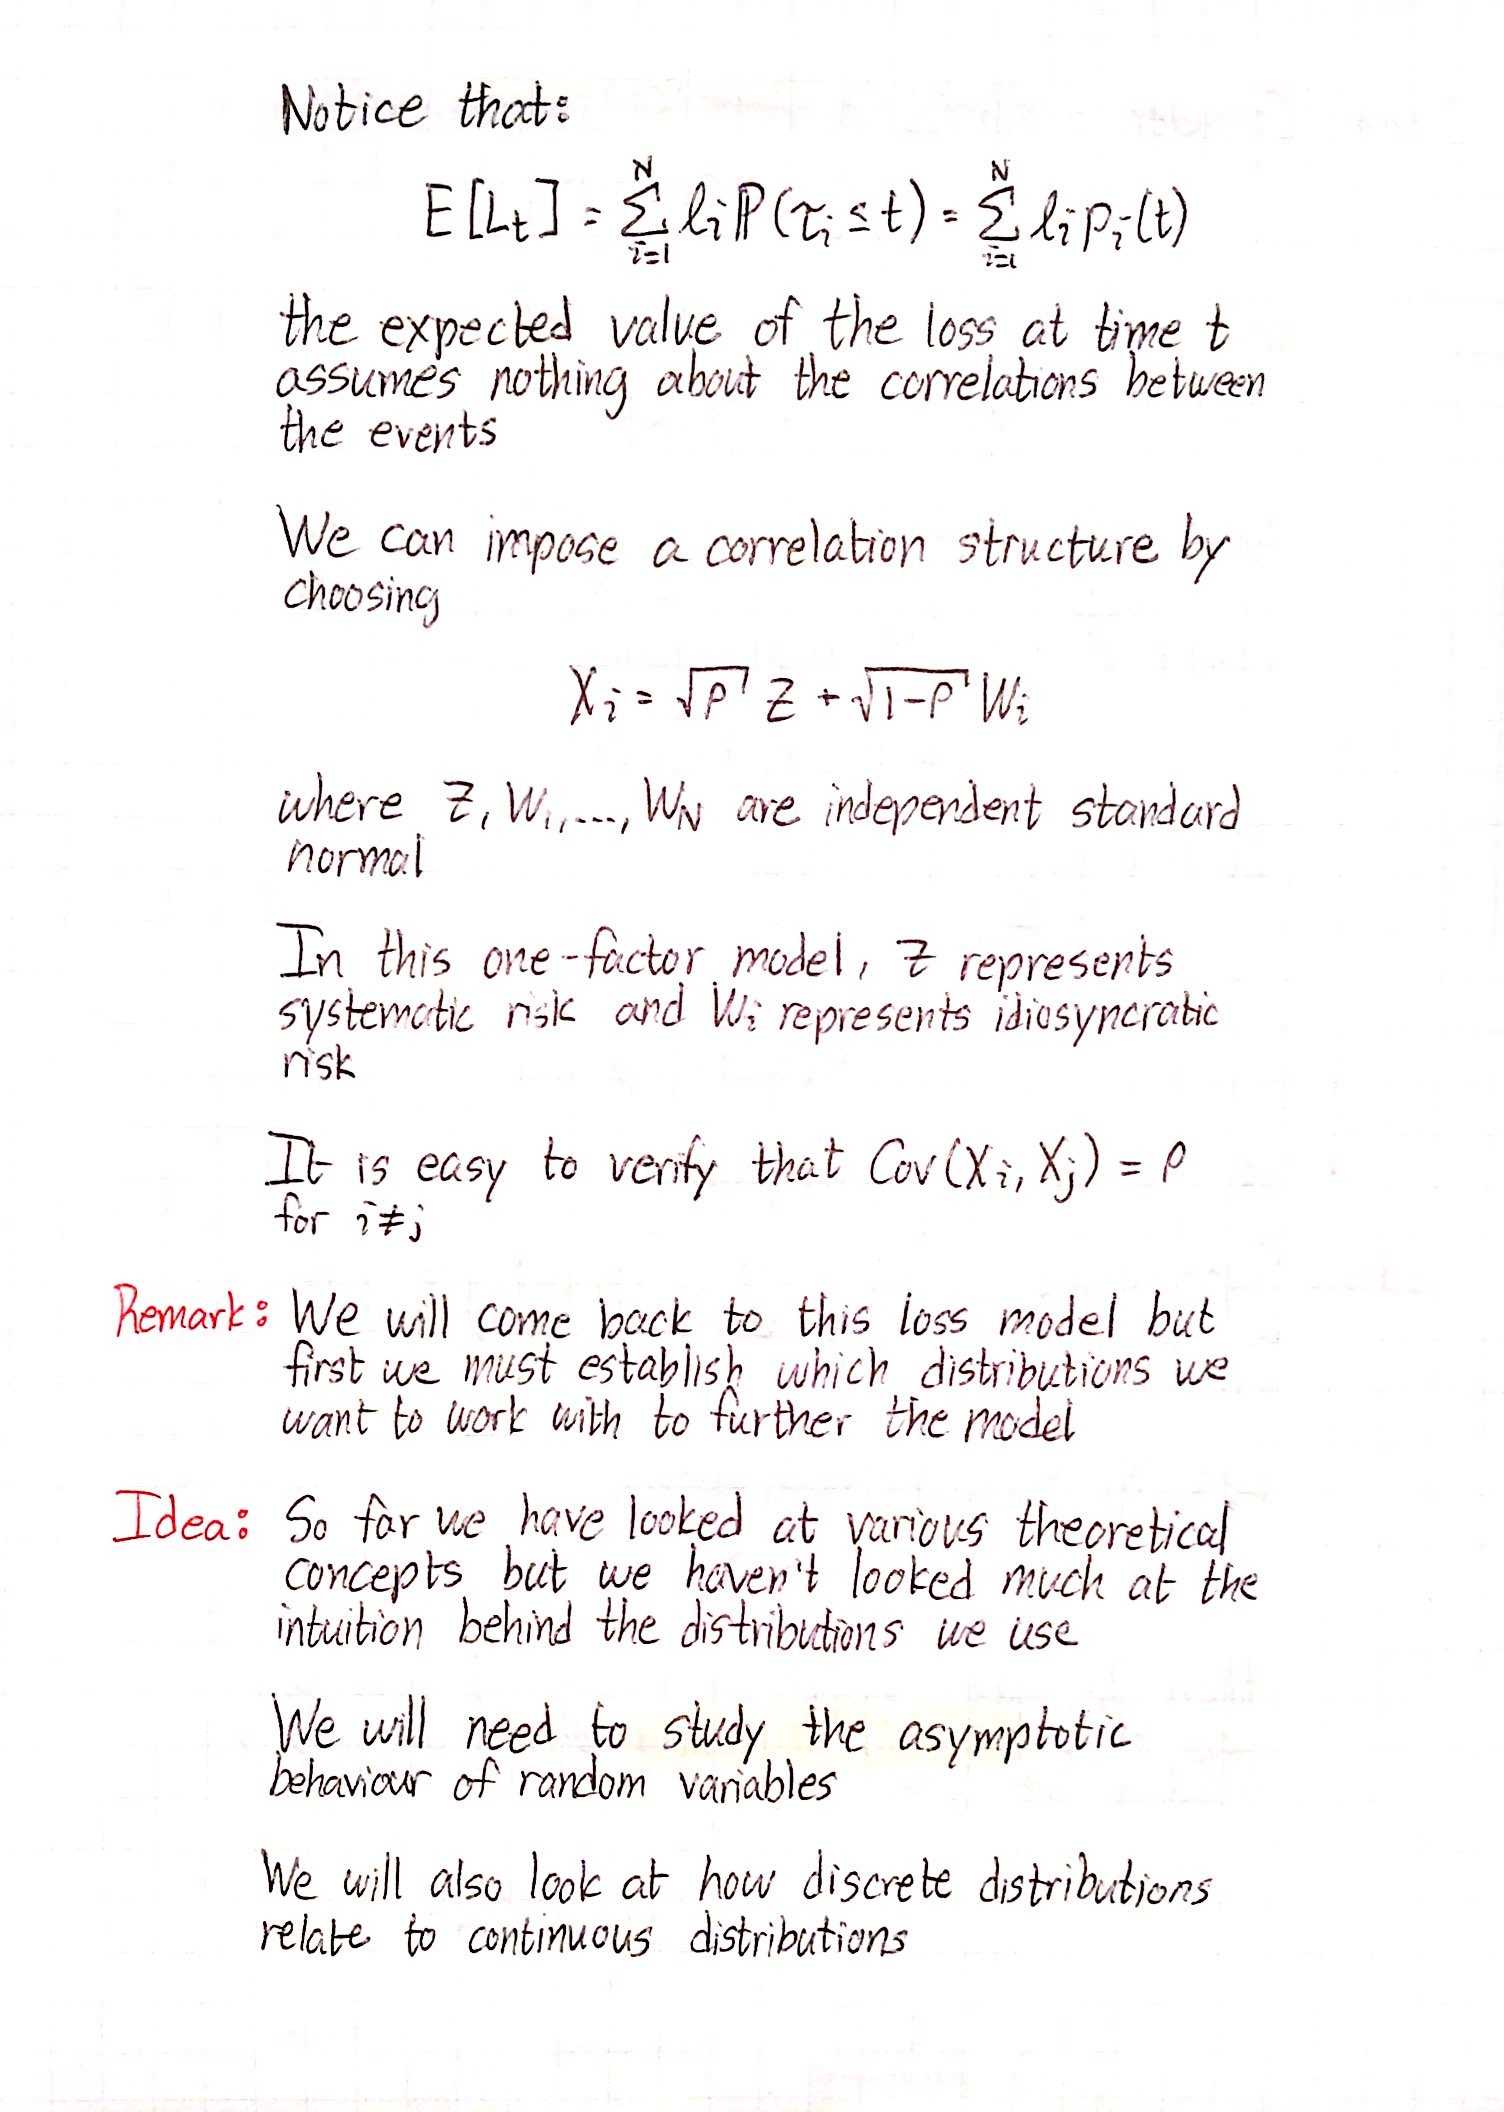 Notice that:
E[Lt] = N∑i=1 li ℙ(τi ≤ t) = N∑i=1 li pi(t)
the expected value of the loss at time t
assumes nothing about the correlations between
the events
We can impose a correlation structure by
choosing
Xi = √ρ Z + √1-ρ Wi
where Z, W1,..., WN are independent standard
normal
In this one-factor model, Z represents
systematic risk and Wi represents idiosyncratic
risk
It is easy to verify that Cov(Xi, Xj) = ρ
for i≠j
Remark: We will come back to this loss model but
first we must establish which distributions we
want to work with to further the model
Idea: So far we have looked at various theoretical
concepts but we haven't looked much at the
intuition behind the distributions we use
We will need to study the asymptotic
behaviour of random variables
We will also look at how discrete distributions
relate to continuous distributions